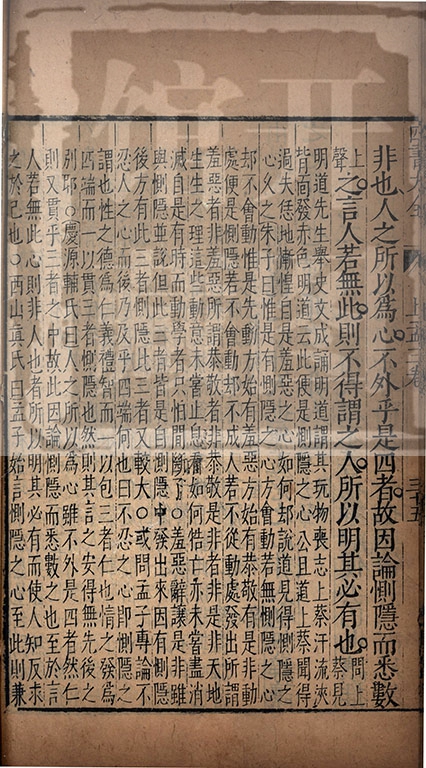 非也人之所以爲心不外乎是四者故因論惻隱而悉數
之言人若無此則不得謂之人所以明其必有也
上聲
問上蔡見
明道先生舉史文成誦明道謂其玩物喪志上蔡汗流浹
背面發赤色明道云此便是惻隱之心公且道上蔡聞得
過失恁地慚惶自是羞惡之心如何却說道見得惻隱之
心久之朱子曰惟是有惻隱之心方會動若無惻隱之心
却不會動惟是先動方始有羞惡方始有恭敬有是非動
處便是惻隱若不會動却不成人若不從動處發出所謂
羞惡者非羞惡所謂恭敬者非恭敬是非者非是非天地
生生之理這些動意未嘗止息看如何梏亡亦未嘗盡消
滅自是有時而動學者只怕間斷了○羞惡辭讓是非雖
與惻隱並說但此三者皆是自惻隱中發出來因有惻隱
後方有此三者惻隱比三者又較大○或問孟子專論不
忍人之心而後乃及乎四端何也曰不忍之心即惻隱之
謂也性之德爲仁義禮智而一以包三者仁也情之發爲
四端而一以貫三者惻隱也然則其言之安得無先後之
別耶○慶源輔氏曰人之所以爲心雖不外是四者然仁
則又貫乎三者之中故此因論惻隱而悉數之也至於言
人若無此心則非人也者所以明其必有而使人知反求
之於己也○西山眞氏曰孟子始言惻隱之心至此則兼
上孟三卷
三十五